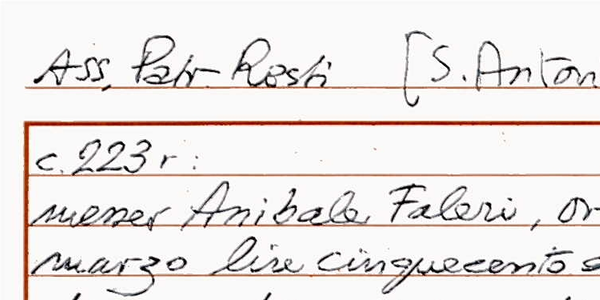 Ass. Patr. Resti [S. Anton
c. 223 r:
messer Anibale Faleri, or
marzo lire cinquecento